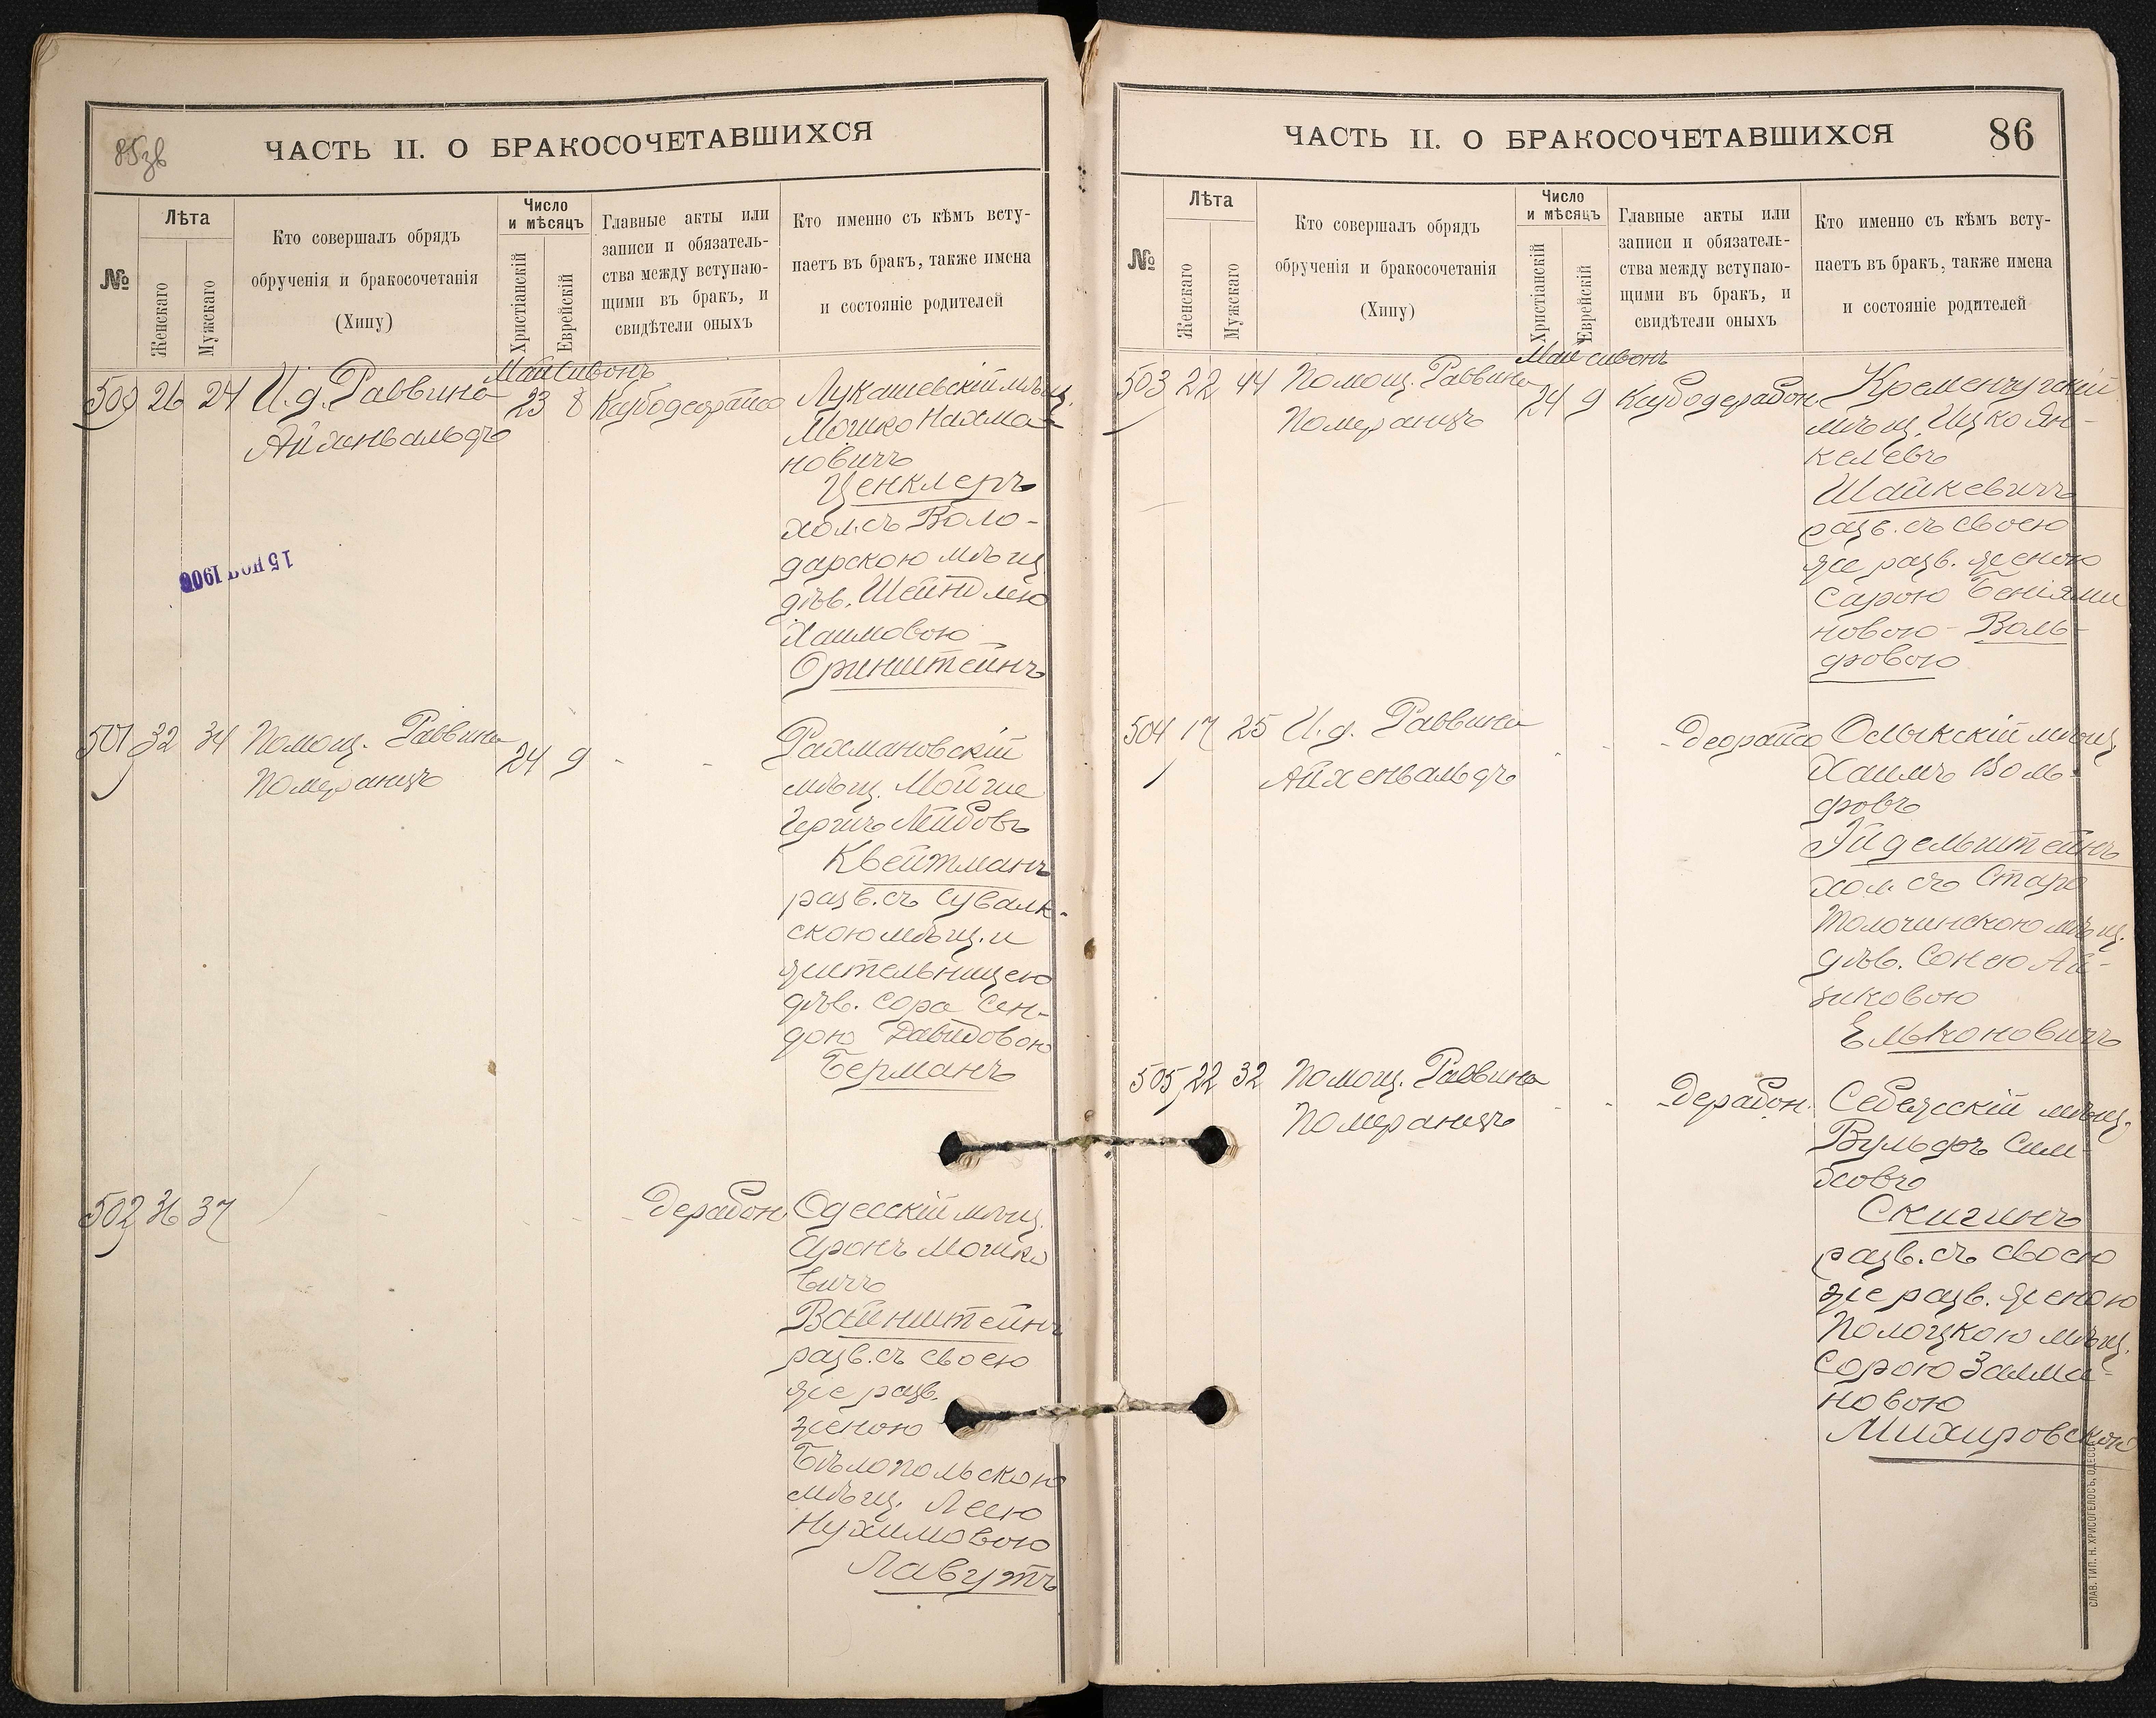 85зв
ЧАСТЬ II. О БРАКОСОЧЕТАВШИХСЯ
№
Лѣта
Женскаго
Мужскаго
Кто совершалъ обрядъ
обрученія и бракосочетанія
(Хипу)
Число
и мѣсяцъ
Христіанскій
Еврейскій
Главные акты или
записи и обязатель-
ства между вступаю-
щими въ бракъ, и
свидѣтели оныхъ
Кто именно съ кѣмъ всту-
паетъ въ бракъ, также имена
и состояніе родителей
Май Сивонъ
500 26 24 И. д. Раввина 23 8
Айхенвальдъ
Лукашевскій мѣщ.
Мошко Нахма-
новичъ
Ценклеръ
хол. съ Воло-
дарскою мѣщ.
дѣв. Шейндлею
Хаимовою
Оринштейнъ
15 НОЯ 1900
501 32 34 Помощ. Раввина 24 9 - -
Померанцъ
Рахмановскій
мѣщ. Мойше
Гершъ Лейбовъ
Квейтманъ
разв. съ Сувалк-
скою мѣщ. и
жительницею
дѣв. Сора Сен-
дою Давидовою
Берманъ
502 36 37 - - - - Дерабон.
Одесскій мѣщ.
Аронъ Мошко
вичъ
Вайнштейнъ
разв. съ своею
же разв.
женою
Бѣлопольскою
мѣщ. Леею
Нухимовою
Лавутъ
ЧАСТЬ II. О БРАКОСОЧЕТАВШИХСЯ
86
№
Лѣта
Женскаго
Мужскаго
Кто совершалъ обрядъ
обрученія и бракосочетанія
(Хипу)
Число
и мѣсяцъ
Христіанскій
Еврейскій
Главные акты или
записи и обязатель-
ства между вступаю-
щими въ бракъ, и
свидѣтели оныхъ
Кто именно съ кѣмъ всту-
паетъ въ бракъ, также имена
и состояніе родителей
Май Сивонъ
503 22 44 Помощ. Раввина 24 9 Кисбодерабон.
Померанцъ
Кременчугскій
мѣщ. Ицко Ян-
келевъ
Шайкевичъ
разв. съ своею
же разв. женою
Сарою Беніями
новою Воль-
фовою
504 17 25 И. д. Раввина - - - Деорайса
Айхенвальдъ
Олыкскій мѣщ.
Хаимъ Воль-
фовъ
Эйдельштейнъ
хол. съ Старо
Толочинскою мѣщ.
дѣв. Сонею Ай-
зиковою
Ельконовичъ
505 22 32 Помощ. Раввина - - - Дерабон.
Померанцъ
Себежскій мѣщ.
Вульфъ Сим-
ховъ
Скигинъ
разв. съ своею
же разв. женою
Полоцкою мѣщ.
Сорою Залма-
новою
Михировскою
СЛАВ. ТИП. Н. ХРИСОГЕЛОСЪ, ОДЕССА